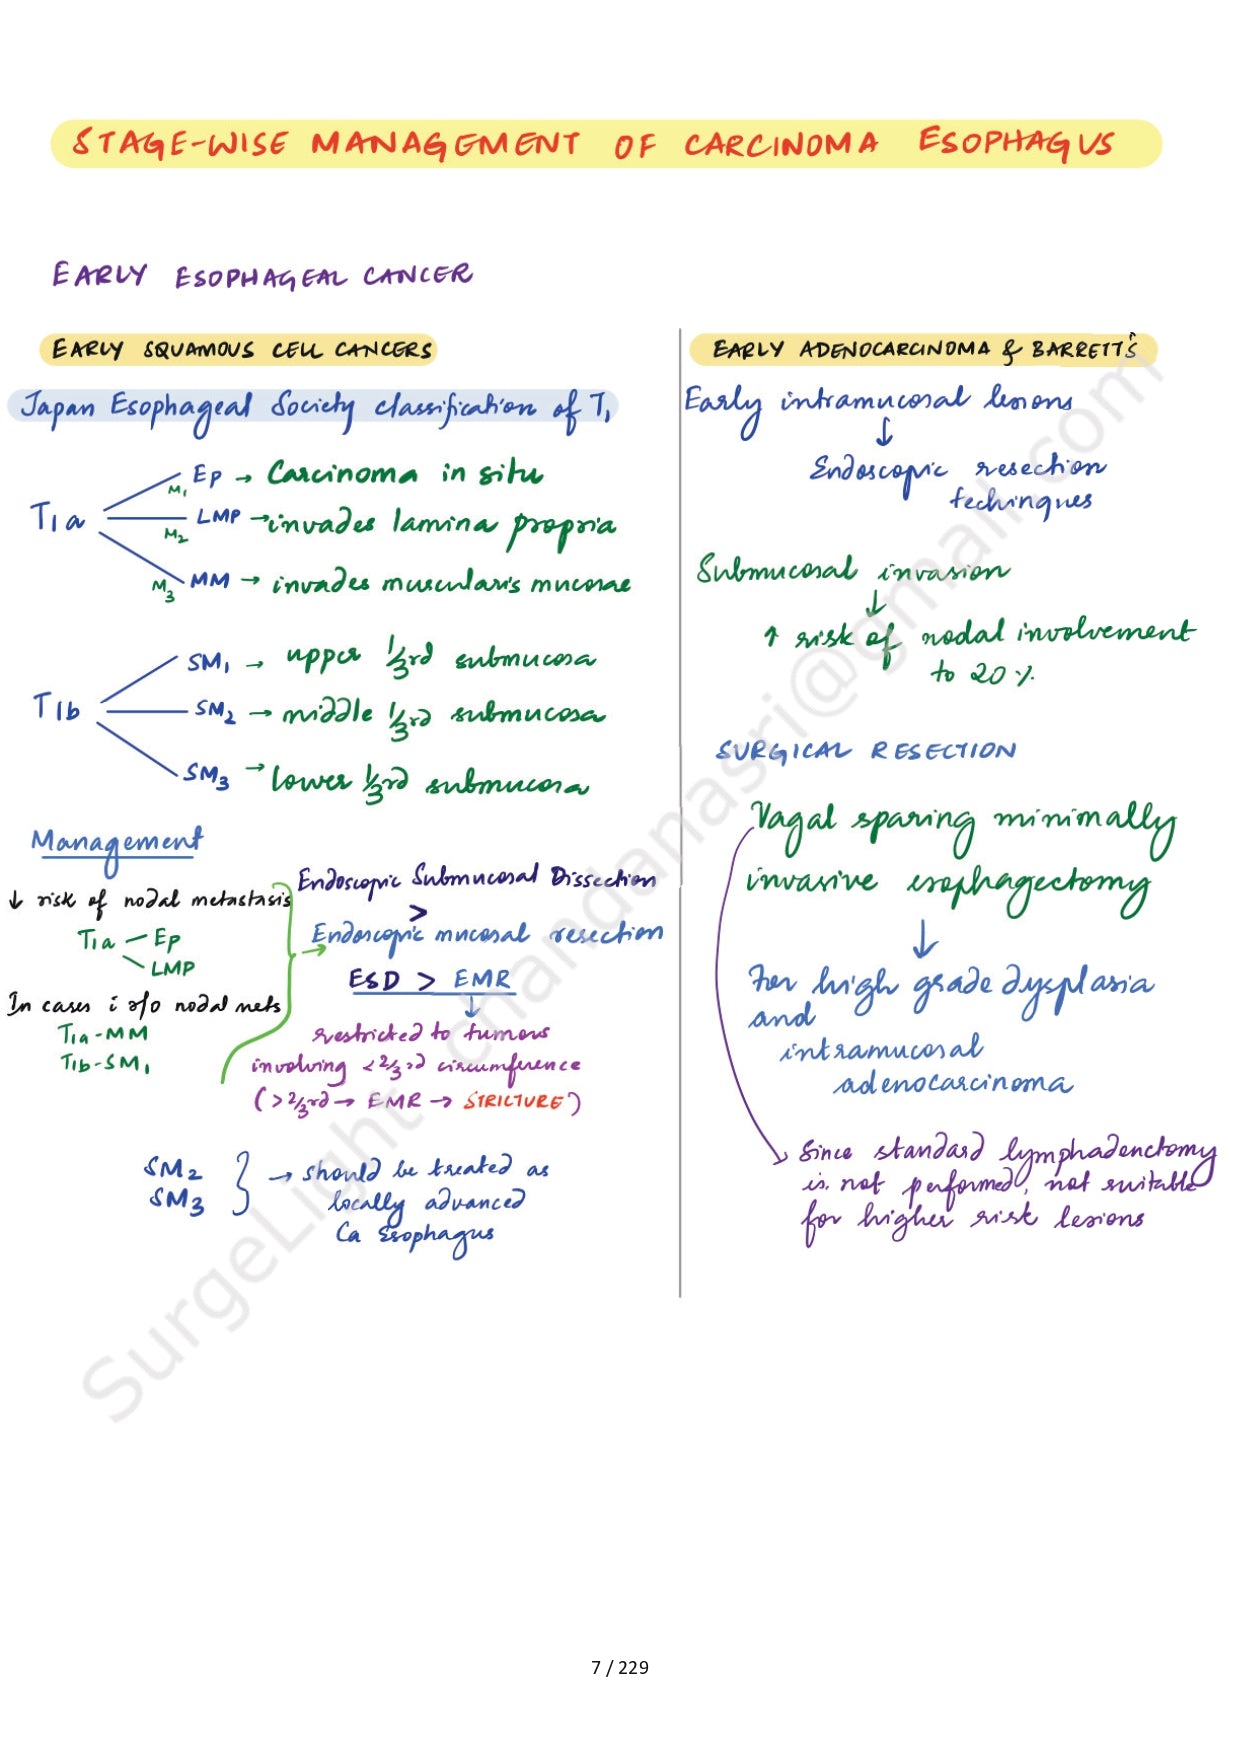 STAGE-WISE MANAGEMENT OF CARCINOMA ESOPHAGUS
EARLY ESOPHAGEAL CANCER
EARLY SQUAMOUS CELL CANCERS
Japan Esophageal Society classification of T1
T1a
M1 EP → Carcinoma in situ
M2 LMP → invades lamina propria
M3 MM → invades muscularis mucosae
T1b
SM1 → upper 1/3rd submucosa
SM2 → middle 1/3rd submucosa
SM3 → lower 1/3rd submucosa
Management
↓ risk of nodal metastasis
T1a – EP
LMP
In cases c̄ r/o nodal mets
T1a - MM
T1b - SM1
→ Endoscopic Submucosal Dissection
>
Endoscopic mucosal resection
ESD > EMR
↓
restricted to tumours
involving < 2/3rd circumference
(> 2/3rd → EMR → STRICTURE)
SM2
SM3
→ should be treated as
locally advanced
Ca Esophagus
EARLY ADENOCARCINOMA & BARRETT'S
Early intramucosal lesons
↓
Endoscopic resection
techinques
Submucosal invasion
↓
↑ risk of nodal involvement
to 20 %
SURGICAL RESECTION
Vagal sparing minimally
invasive esophagectomy
↓
For high grade dysplasia
and
intramucosal
adenocarcinoma
Since standard lymphadenctomy
is not performed, not suitable
for higher risk lesions
SurgeLight chandanasri@gmail.com
7 / 229